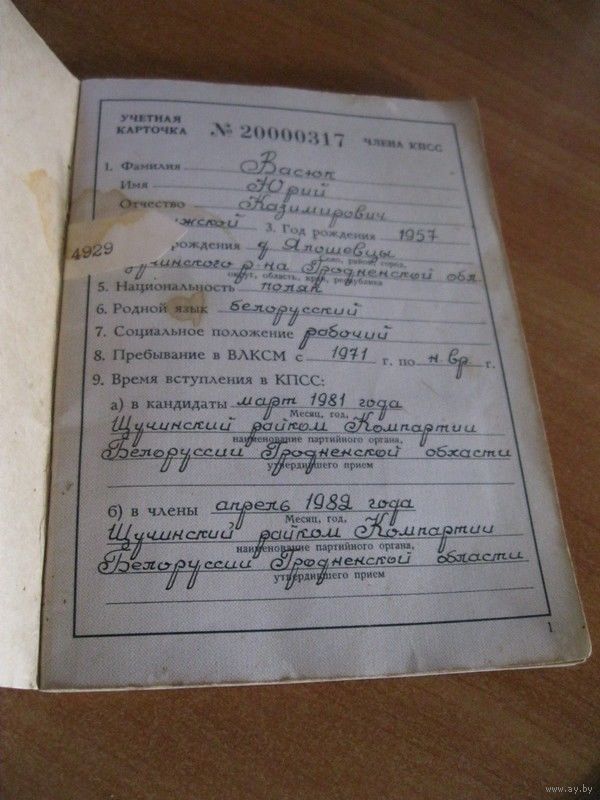 УЧЕТНАЯ КАРТОЧКА № 20000317 ЧЛЕНА КПСС
1. Фамилия Васюк
Имя Юрий
Отчество Казимирович
жской 3. Год рождения 1957
4929
рождения д. Япошевцы
село, район, город,
учинского р-на Гродненской обл.
округ, область, край, республика
5. Национальность поляк
6. Родной язык белорусский
7. Социальное положение рабочий
8. Пребывание в ВЛКСМ с 1971 г. по н. вр. г.
9. Время вступления в КПСС:
а) в кандидаты март 1981 года
Месяц, год,
Щучинский райком Компартии
наименование партийного органа,
Белоруссии Гродненской области
утвердившего прием
б) в члены апрель 1982 года
Месяц, год,
Щучинский райком Компартии
наименование партийного органа,
Белоруссии Гродненской области
утвердившего прием
1
www.ay.by